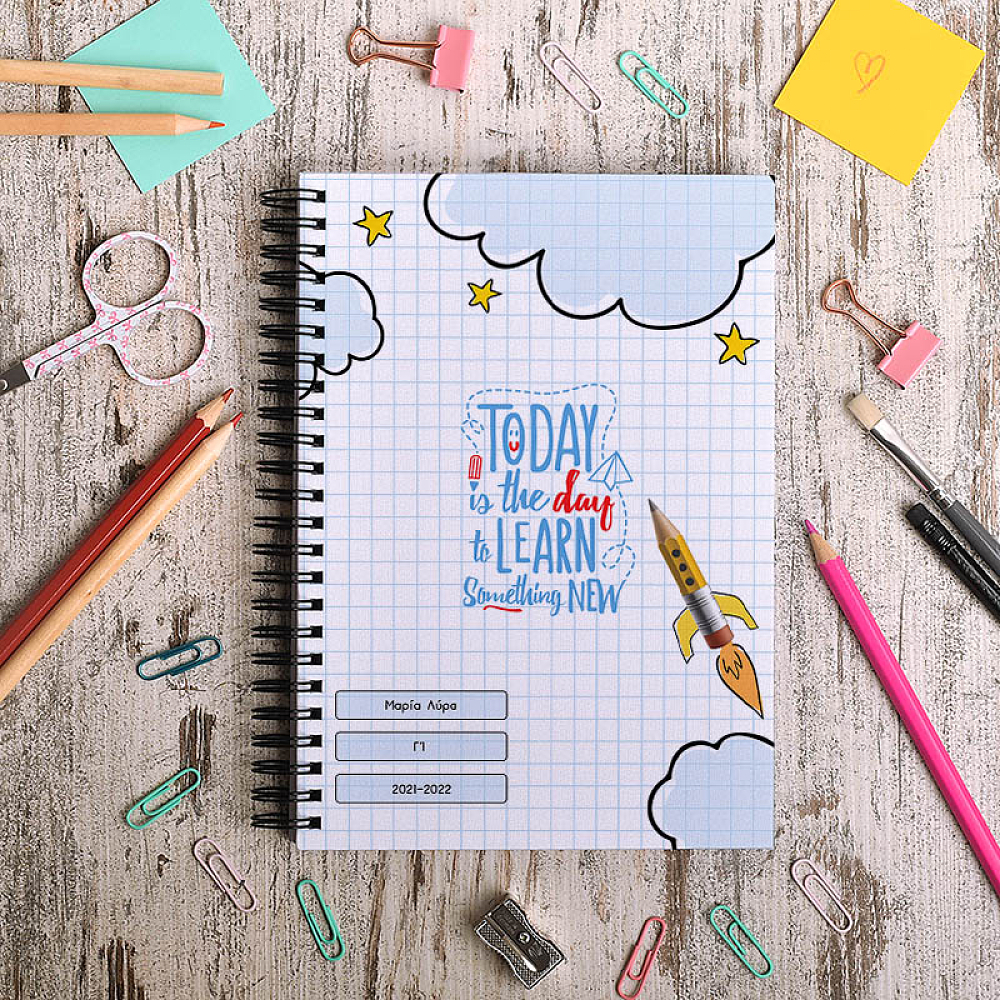 TODAY
is the day
to LEARN
Something NEW
Μαρία Λύρα
Γ'1
2021-2022